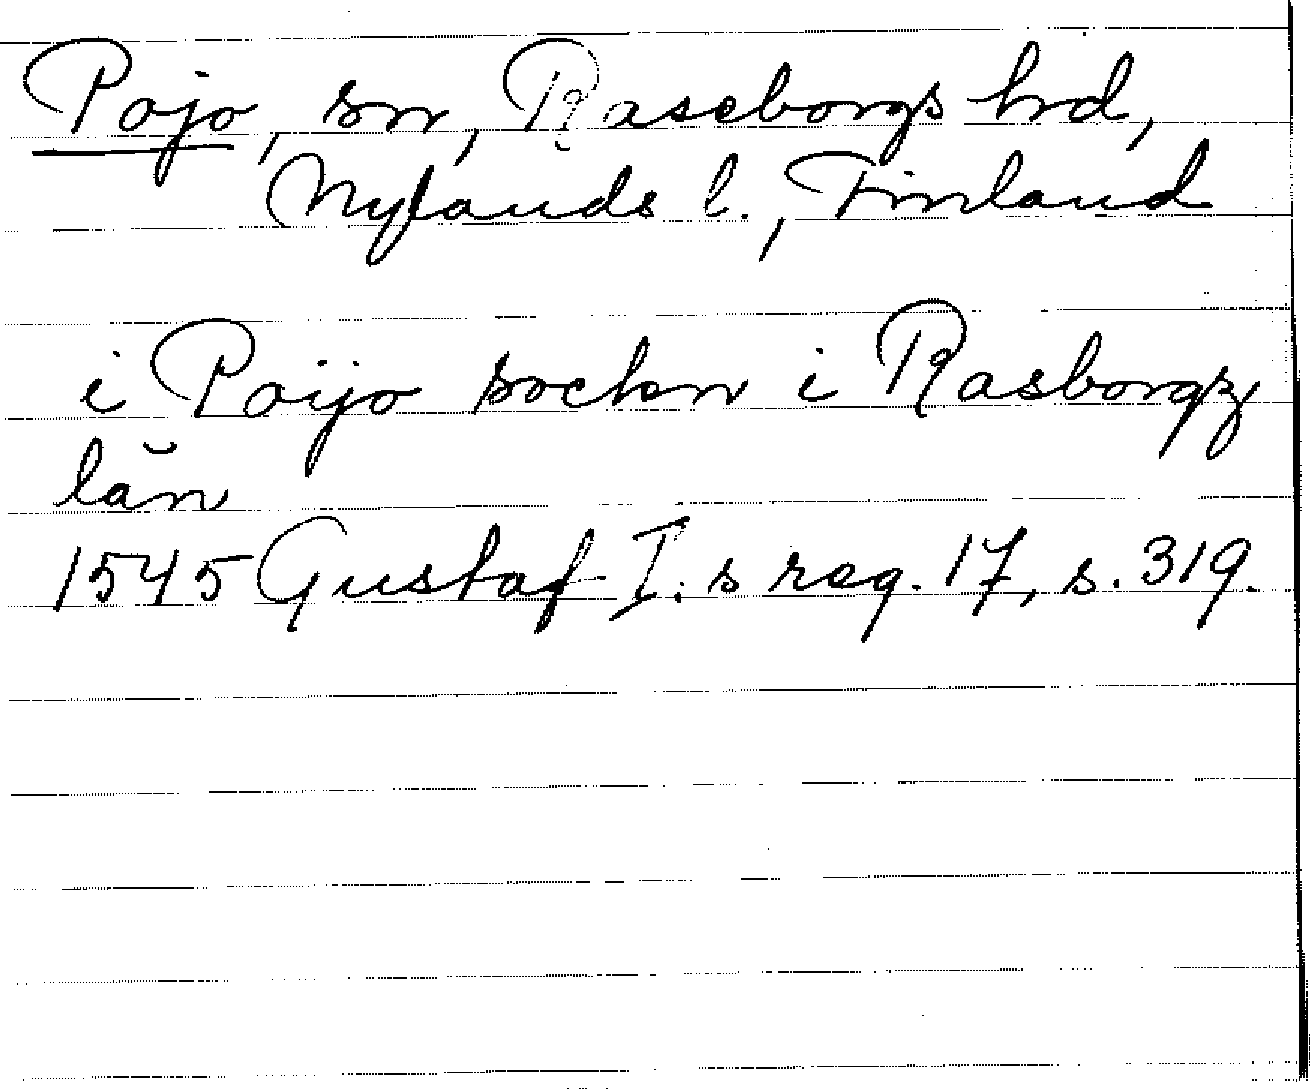 Pojo, sn, Raseborgs hrd,
Nylands l., Finland
i Poijo sockn i Rasborgz
län
1545 Gustaf I:s reg. 17, s. 319.